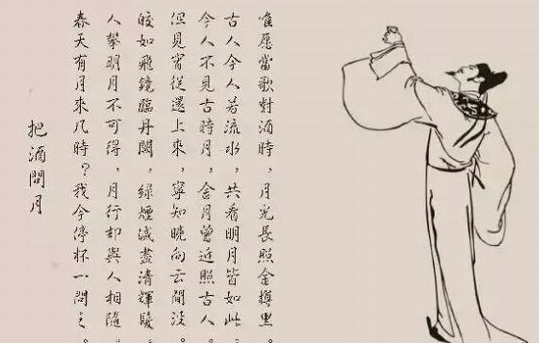 把酒問月
春天有月來几時?我今停杯一問之。
人攀明月不可得,月行却與人相隨。
皎如飛鏡臨丹闕,綠煙滅盡清輝
但見宵從還上來,寧知晚向云間沒。
今人不見古時月,今月曾近照古人。
古人今人若流水,共看明月皆如此。
唯愿當歌對酒時,月光長照金樽里。